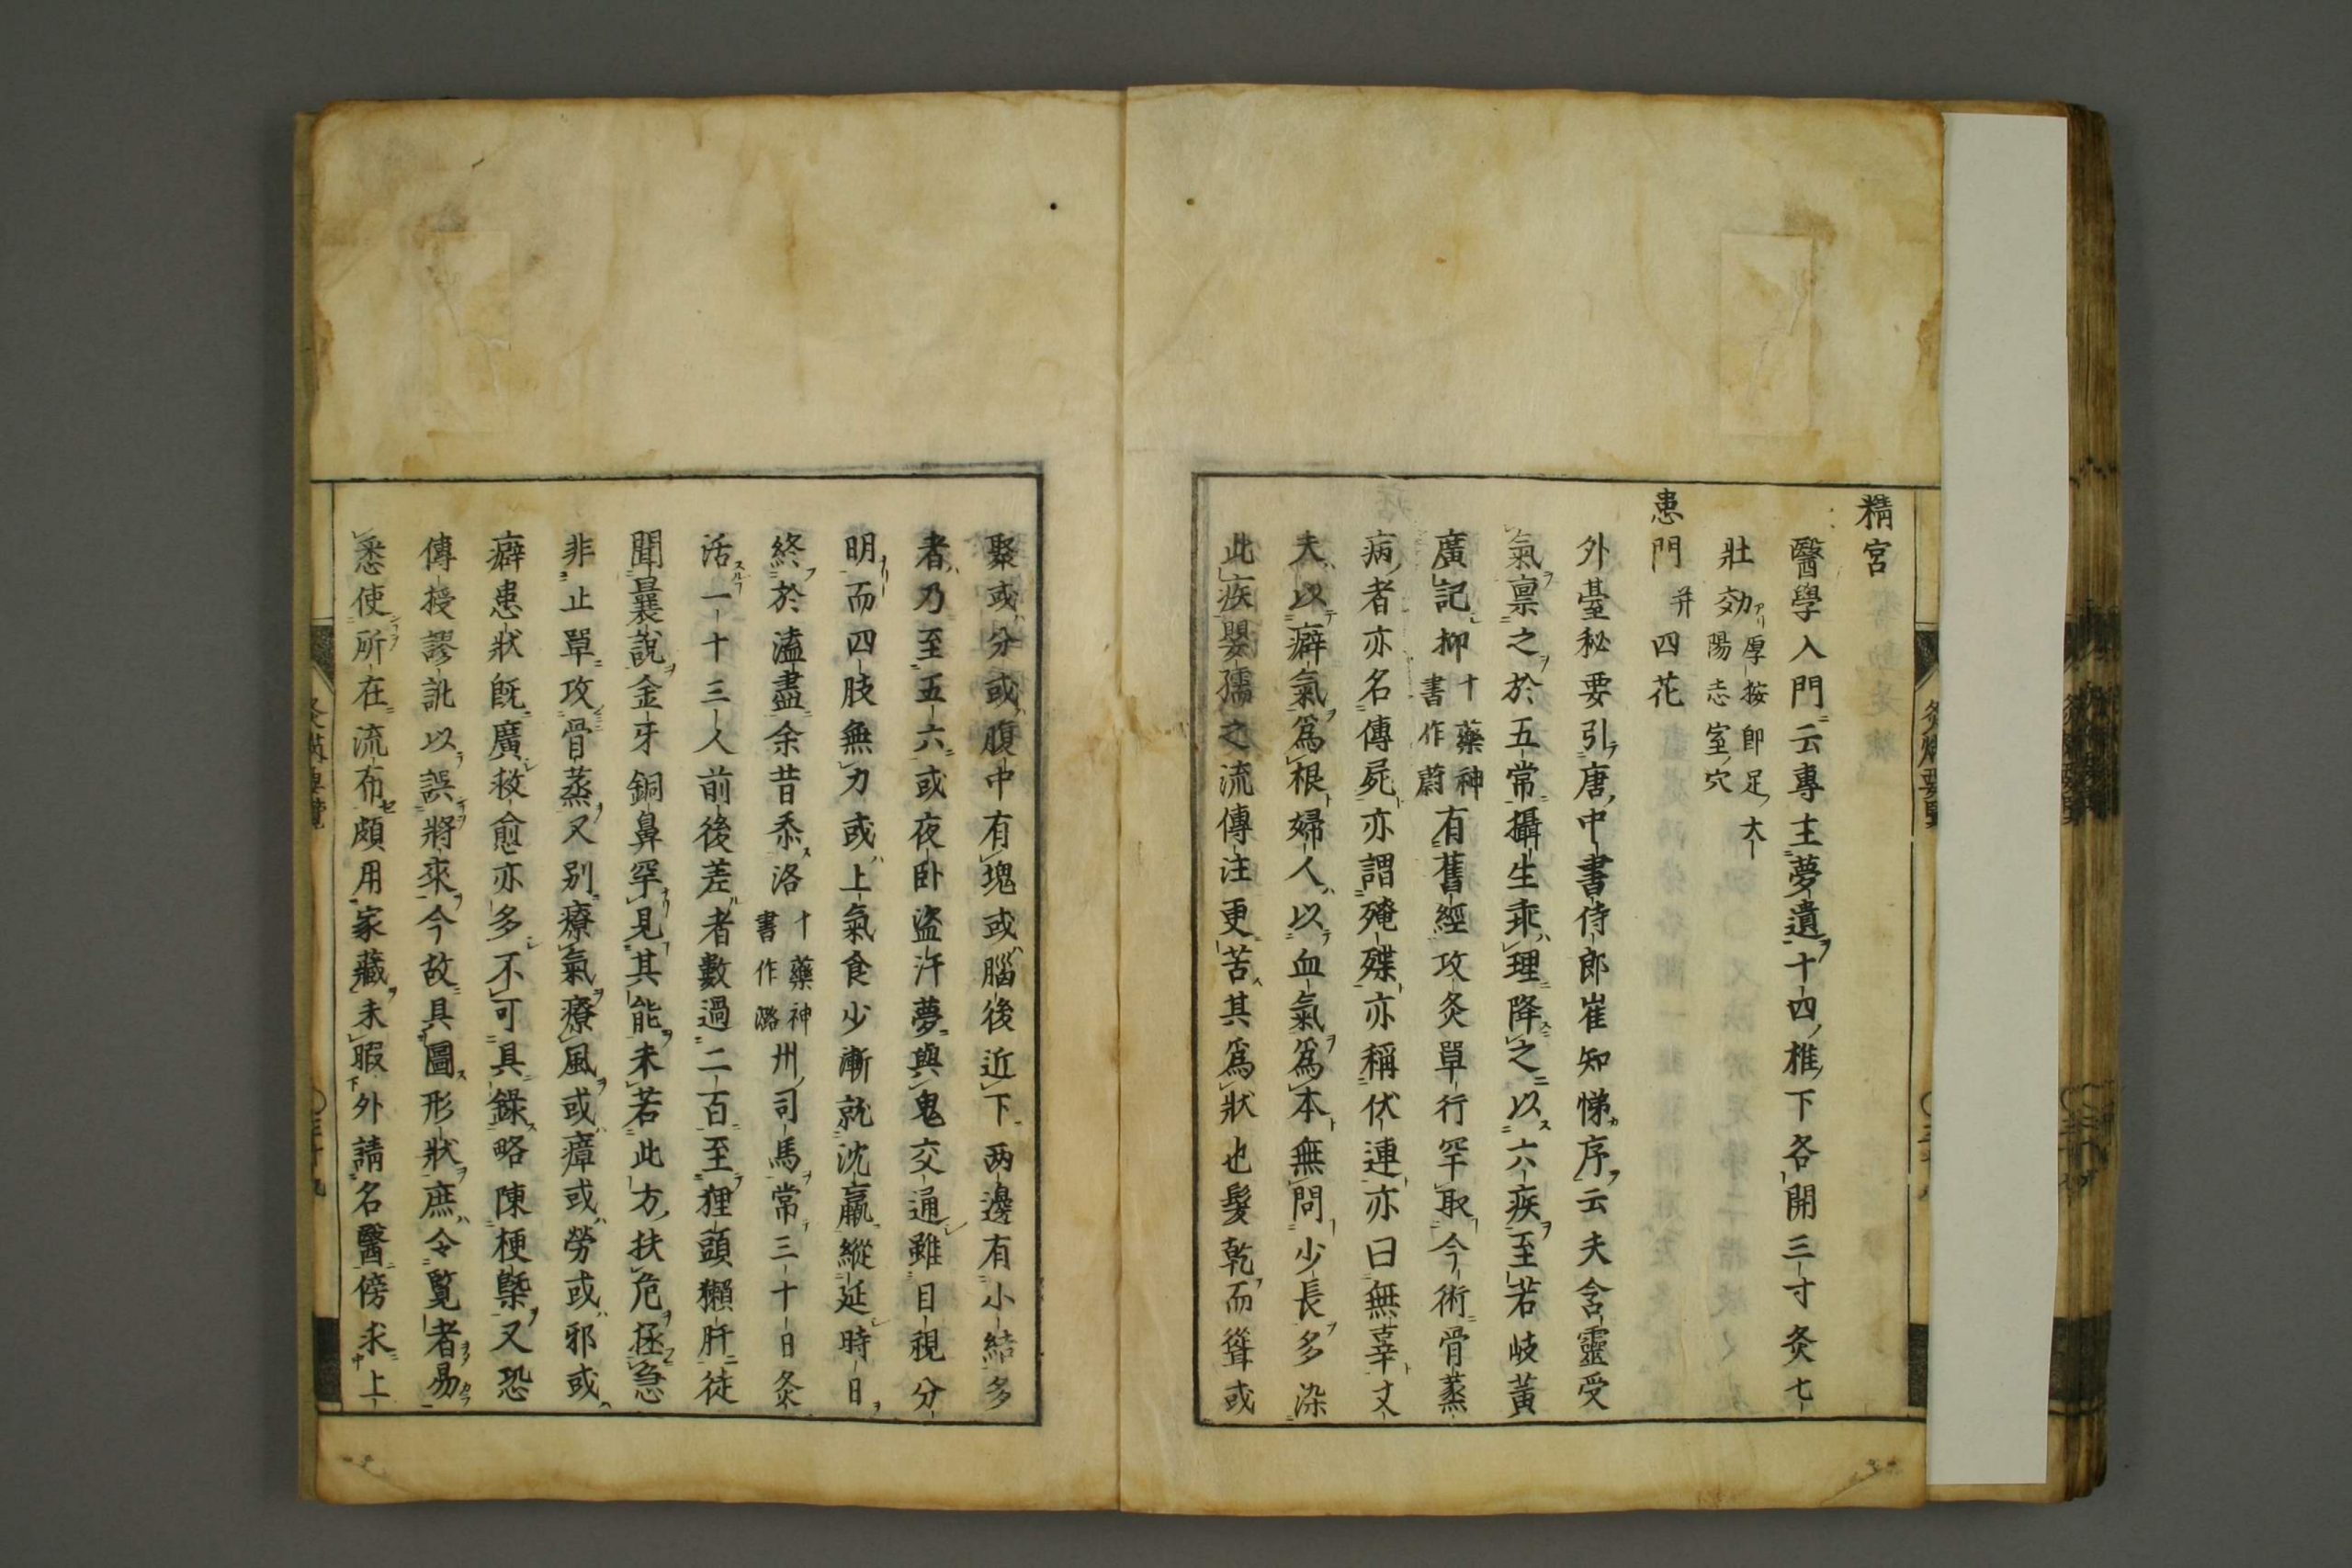 精宮
醫學入門云專主夢遺十四椎下各開三寸灸七
壯効厚按即足大
陽志室穴
患門并四花
外臺秘要引唐中書侍郎崔知悌序云夫含靈受
氣禀之於五常攝生乖理降之以六疾至若岐黃
廣記抑十藥神
書作蔚有舊經攻灸單行罕取今術骨蒸
病者亦名傳屍亦謂殗殜亦稱伏連亦曰無辜丈
夫以癖氣為根婦人以血氣為本無問少長多染
此疾嬰孺之流傳注更苦其為狀也髮乾而聳或
聚或分或腹中有塊或腦後近下两邊有小結多
者乃至五六或夜臥盜汗夢與鬼交通雖目視分
明而四肢無力或上氣食少漸就沈羸縱延時日
終於溘盡余昔忝洛十藥神
書作潞州司馬常三十日灸
活一十三人前後差者數過二百至狸頭獺肝徒
聞曩說金牙銅鼻罕見其能未若此方扶危拯急
非止單攻骨蒸又別療氣療風或瘴或勞或邪或
癖患狀既廣救愈亦多不可具錄略陳梗槩又恐
傳授謬訛以誤將來今故具圖形狀庶令覽者易
悉使所在流布頗用家藏未暇外請名醫傍求上